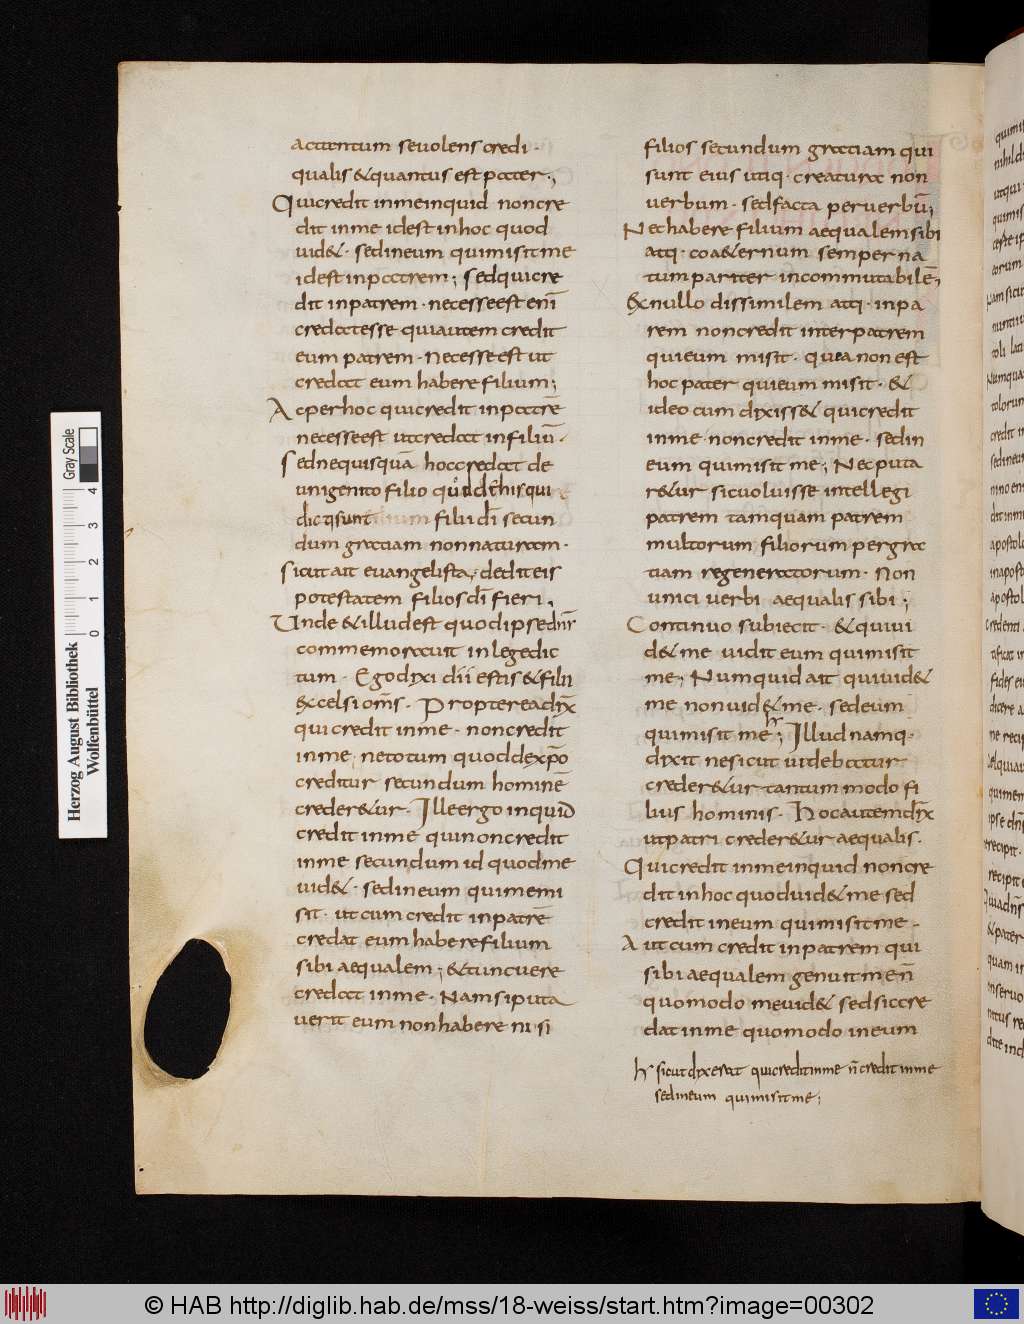 actantum se uolens credi ·
qualis & quantus est pater ·,
Qui credit in me inquid non cre
dit in me id est in hoc quod
uid& · sed in eum qui misit me
id est in patrem ; sed qui cre
dit in patrem · necesse est enī
credat esse quia autem credit
eum patrem · Necesse est ut
credat eum habere filium ;
Ac per hoc qui credit in patrē
necesse est ut credat in filiū ·
Sed ne quisquā hoc credat de
unigenito filio qđ de his qui
dicti sunt filii dī secun
dum gratiam non naturam ·
Sicut ait euangelista, dedit eis
potestatem filios dī fieri ,
Unde & illud est quod ipse dnr
commemorauit in lege dic
tum · Ego dixi dii estis & filii
excelsi om̄s · Propterea dix̄
qui credit in me · non credit
in me , ne totum quod de xp̄o
creditur secundum hominē
crederetur · Ille ergo inquid
credit in me qui non credit
in me secundum id quod me
uid& · sed in eum qui me mi
sit · ut cum credit in patrē
credat eum habere filium
sibi aequalem ; & tunc uere
credat in me · Nam si puta
uerit eum non habere nisi
filios secundum gratiam qui
sunt eius utiq· creaturae non
uerbum · sed facta per uerbū ;
Nec habere filium aequalem sibi
atq· coa&ernum semper na
tum pariter incommutabilē ,
Ex nullo dissimilem atq· inpa
rem non credit inter patrem
qui eum misit · quia non est
hoc pater qui eum misit · &
ideo cum dixiss& qui credit
in me non credit in me · sed in
eum qui misit me ; Nec puta
r&ur sic uoluisse intellegi
patrem tamquam patrem
multorum filiorum per gra
tiam regeneratorum · Non
unici uerbi aequalis sibi ;
Continuo subiecit · & qui ui
d& me uidit eum qui misit
me ; Numquid ait qui uid&
me non uid& me · sed eum
qui misit me ; hr Illud namq·
dixit ne sicut uidebatur
creder&ur tantum modo fi
lius hominis · Hoc autem dix̄
ut patri creder&ur aequalis ·
Qui credit in me inquid non cre
dit in hoc quod uid& me sed
credit in eum qui misit me ·
Aut cum credit in patrem qui
sibi aequalem genuit me n̄
quomodo me uid& sed sic cre
dat in me quomodo in eum
hr sicut dixerat qui credit in me n̄ credit in me
sed in eum qui misit me ;
Herzog August Bibliothek
Wolfenbüttel
Gray Scale
0 1 2 3 4
© HAB http://diglib.hab.de/mss/18-weiss/start.htm?image=00302